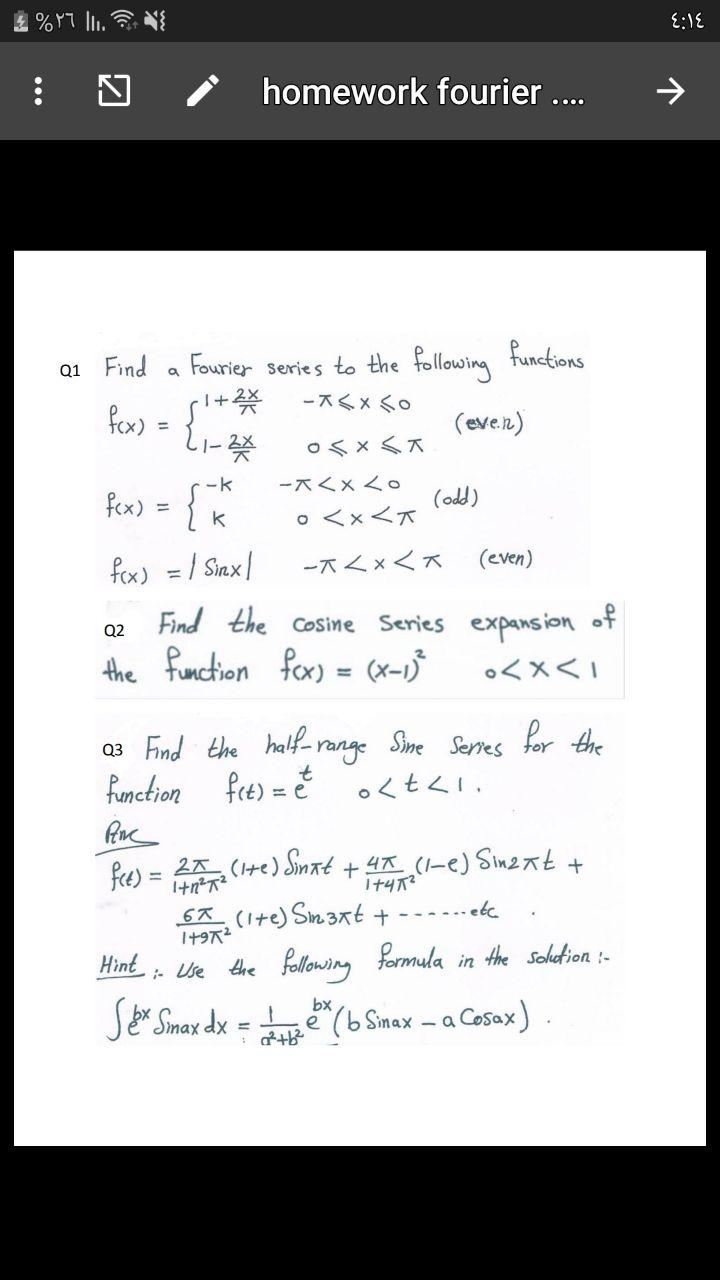 %٢٦ ٤:١٤
homework fourier ....
Q1 Find a Fourier series to the following functions
f(x) = { 1 + 2x/π -π ⩽ x ⩽ 0
1 - 2x/π 0 ⩽ x ⩽ π (even)
f(x) = { -k -π < x < 0
k 0 < x < π (odd)
f(x) = | Sinx | -π < x < π (even)
Q2 Find the cosine series expansion of
the function f(x) = (x-1)² 0 < x < 1
Q3 Find the half-range Sine Series for the
function f(t) = e^t 0 < t < 1 .
f(t) = 2π/(1+π²) (1+e) Sinπt + 4π/(1+4π²) (1-e) Sin2πt +
6π/(1+9π²) (1+e) Sin3πt + -------etc .
Hint :- Use the following formula in the solution :-
∫ e^bx Sinax dx = 1/(a²+b²) e^bx (b Sinax - a Cosax) .